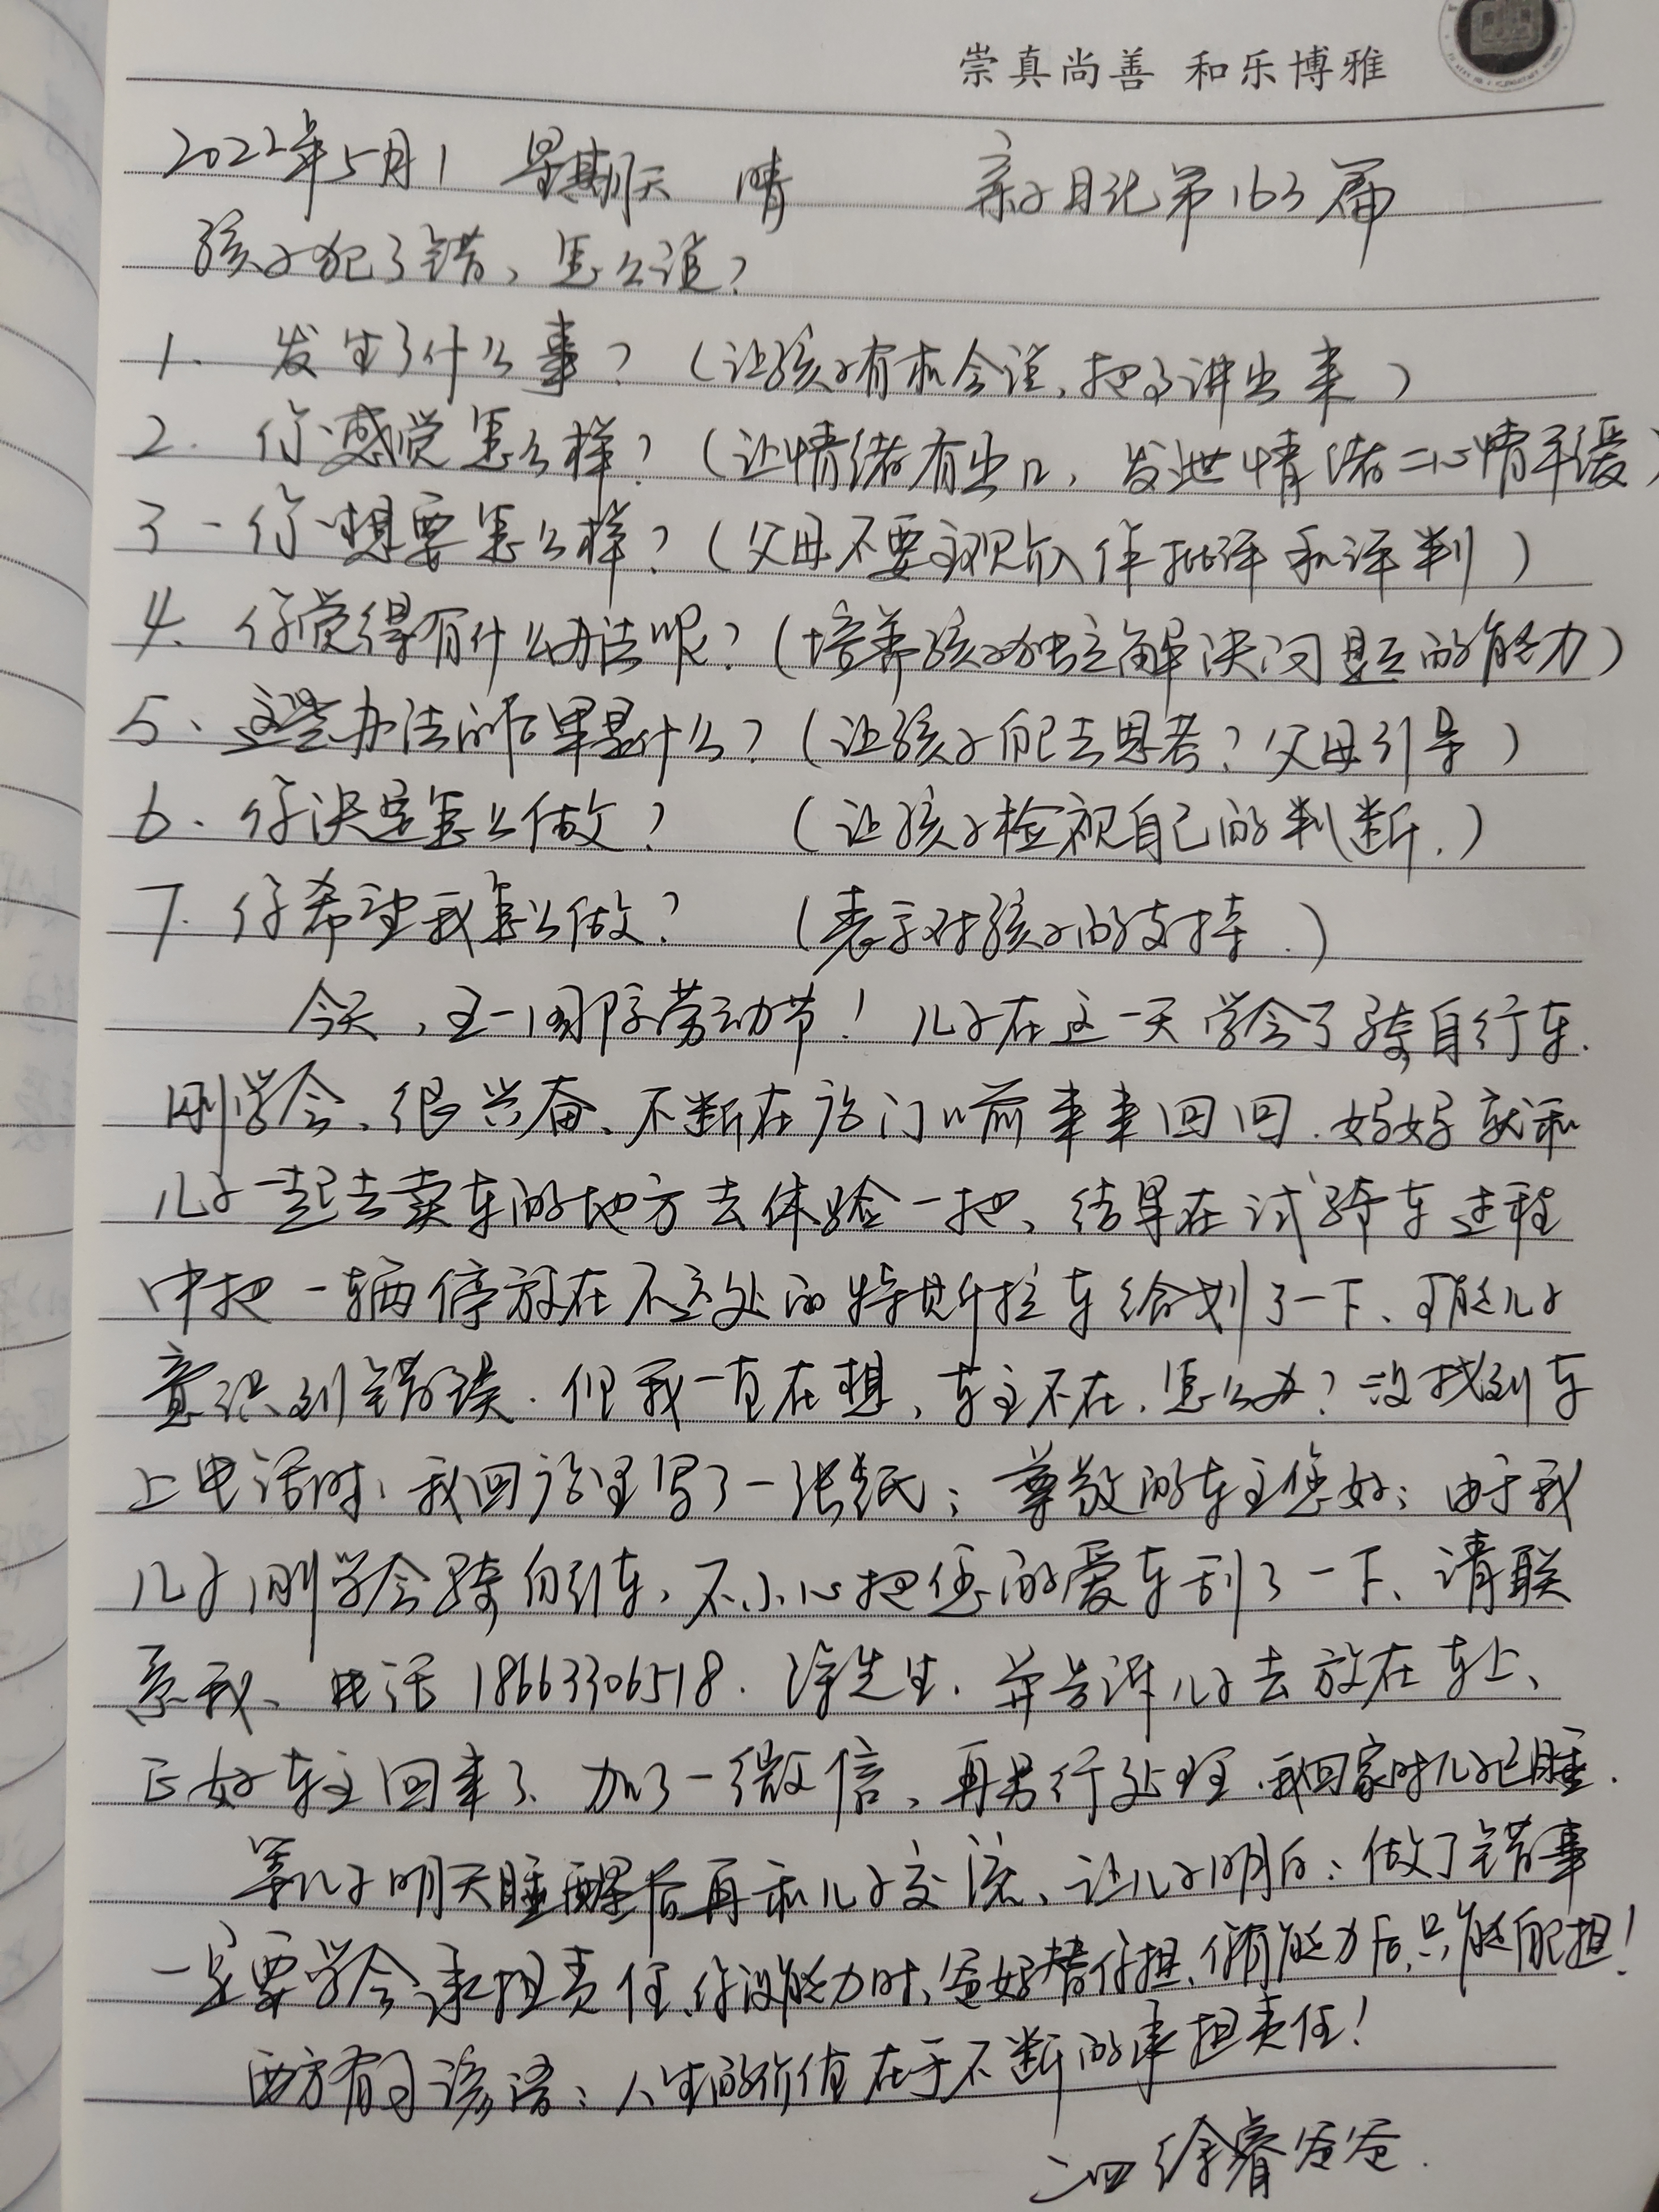 崇真尚善 和乐博雅
2022年5月1 星期天 晴 亲子日记第163篇
孩子犯了错，怎么说？
1. 发生了什么事？（让孩子有机会说，把事讲出来）
2. 你感觉怎么样？（让情绪有出口，发泄情绪=心情平缓）
3. 你想要怎么样？（父母不要主观介入作批评和评判）
4. 你觉得有什么办法呢？（培养孩子独立解决问题的能力）
5、这些办法的后果是什么？（让孩子自己去思考？父母引导）
6. 你决定怎么做？（让孩子检视自己的判断.）
7. 你希望我怎么做？（表示对孩子的支持.）
今天，五一国际劳动节！儿子在这一天学会了骑自行车.
刚学会、很兴奋、不断在店门前来来回回.妈妈就和
儿子一起去卖车的地方去体验一把、结果在试骑车过程
中把一辆停放在不远处的特斯拉车给划了一下、可能儿子
意识到错误.但我一直在想，车主不在.怎么办？没找到车
上电话时，我回店里写了一张纸；尊敬的车主您好；由于我
儿子刚学会骑自行车，不小心把您的爱车刮了一下、请联
系我、电话18663306518.徐先生.并告诉儿子去放在车上、
正好车主回来了、加了一微信、再另行处理.我回家时儿子已睡.
等儿子明天睡醒后再和儿子交流、让儿子明白：做了错事
一定要学会承担责任、你没能力时、爸妈替你担、你有能力后，只能自己担！
西方有句谚语：人生的价值在于不断的承担责任！
二四 徐睿爸爸.